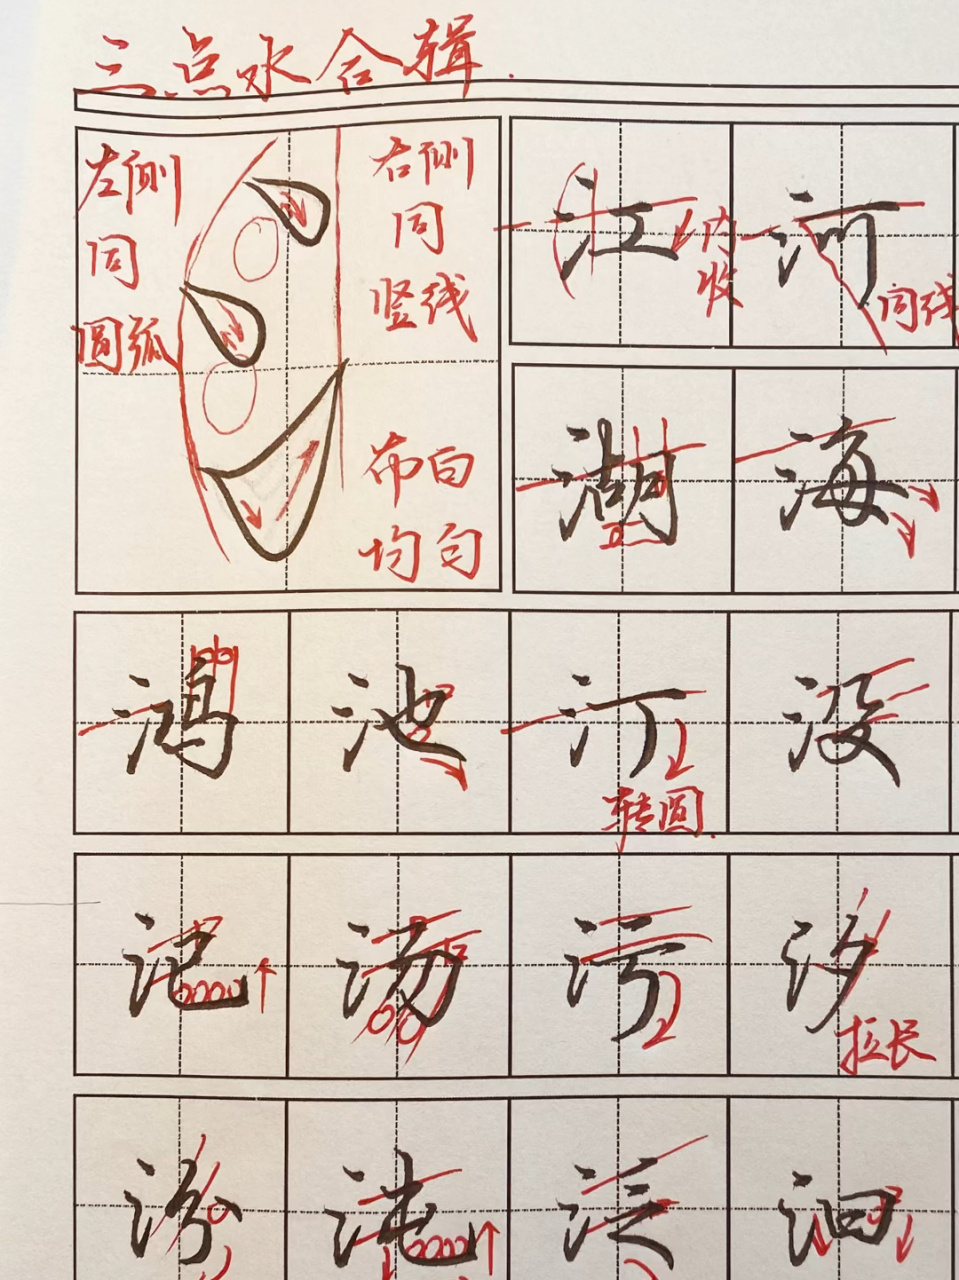 三点水合辑
左侧
同
圆弧
右侧
同
竖线
布白
均匀
江 河
内
收
同线
湖 海
鸿 池 汀 没
转圆
汜 汤 污 汐
拉长
沌 泛 泪